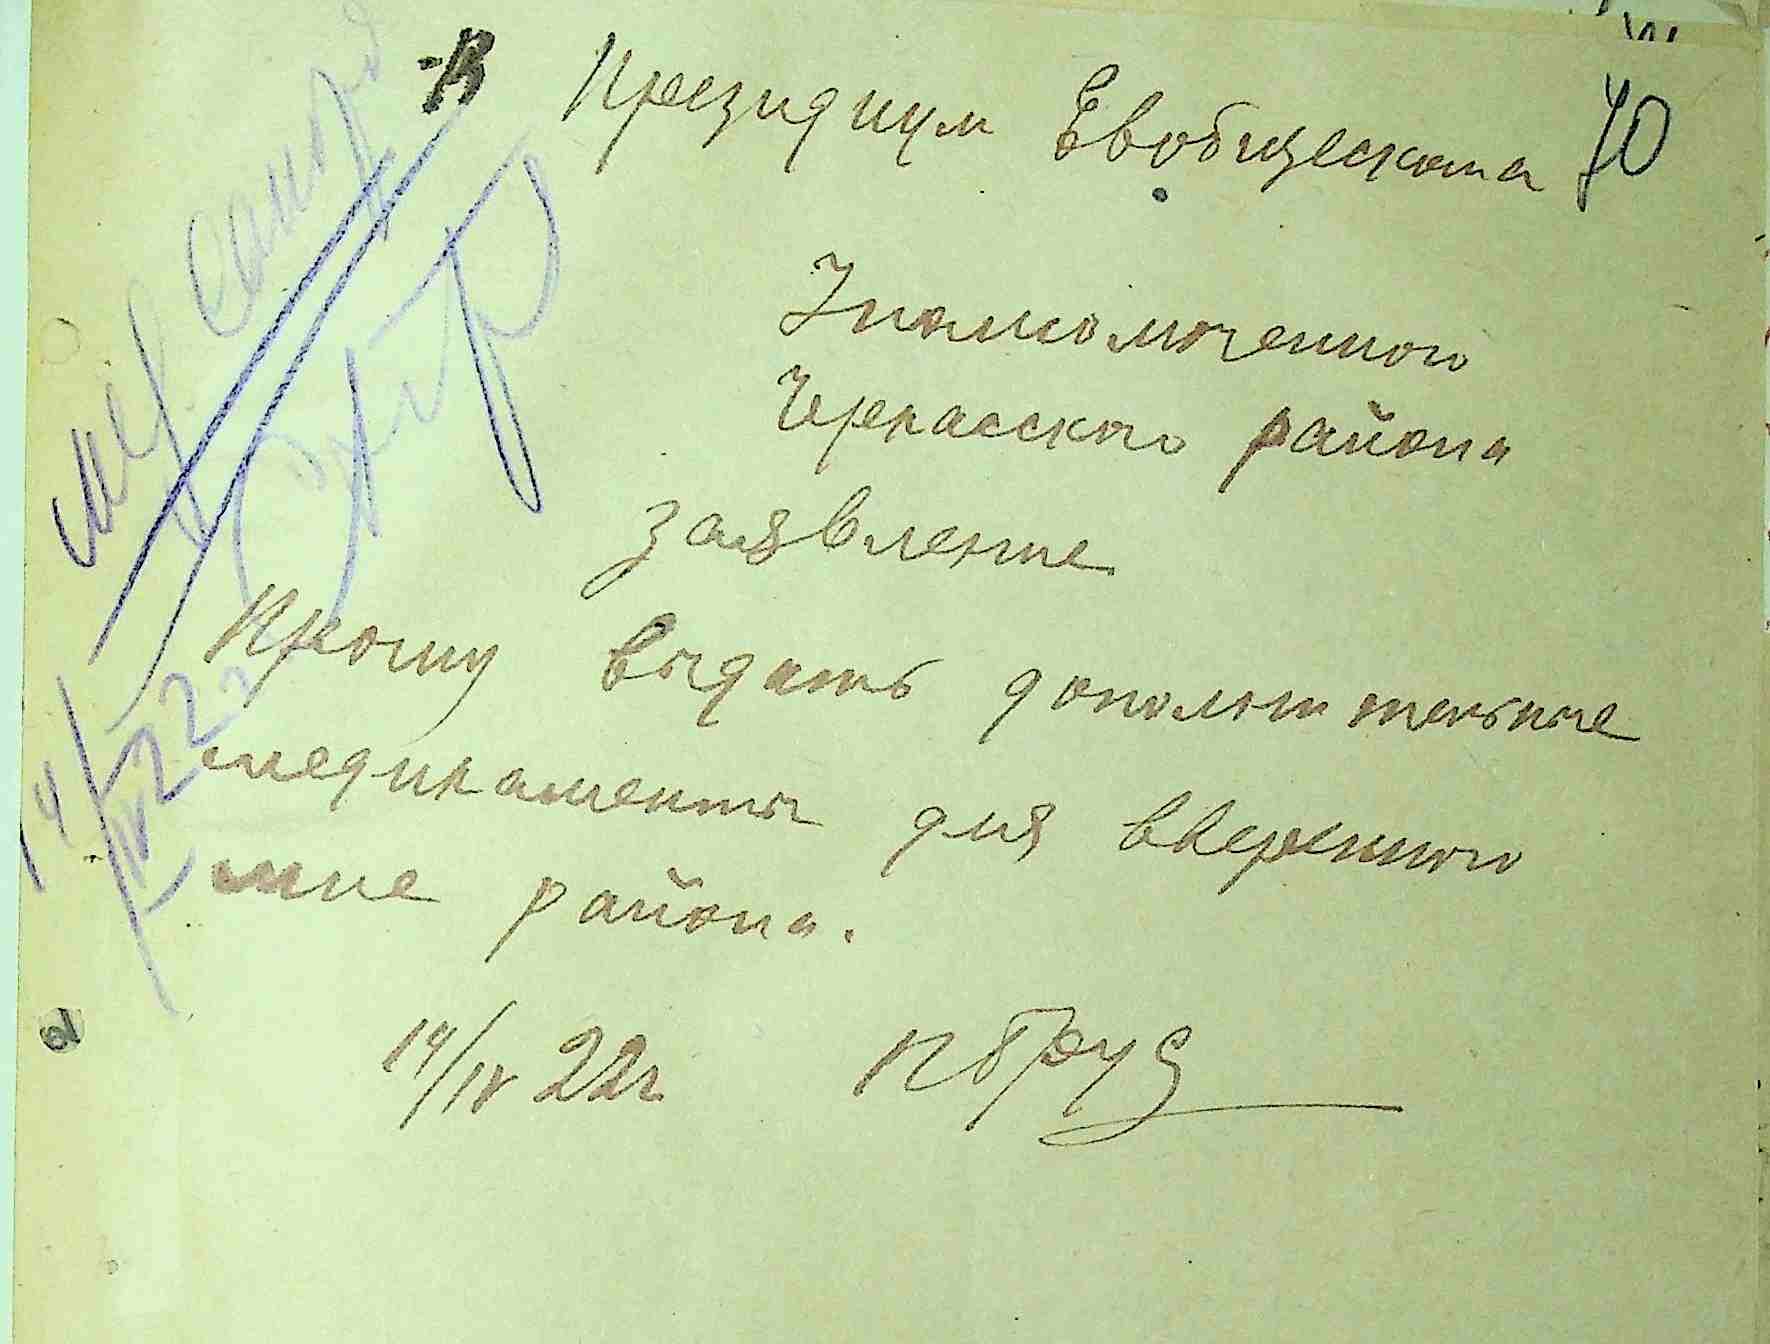 В Президиум Евобщескома
70
Уполномоченного
Черкасского района
заявление
Прошу выдать дополнительные
медикаменты для вверенного
мне района.
14/IV 22г
14/IV 22